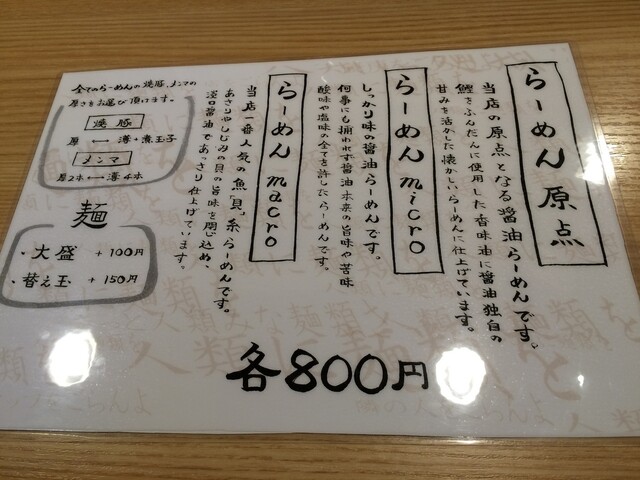 らーめん 原点
当店の原点となる醤油らーめんです。
鰹をふんだんに使用した香味油に醤油独自の
甘みを活かした懐かしいらーめんに仕上げています。
らーめん micro
しっかり味の醤油らーめんです。
何事にも捕われず醤油本来の旨味や苦味
酸味や塩味の全てを許したらーめんです。
らーめん macro
当店一番人気の魚貝系らーめんです。
あさりやしじみの貝の旨味を閉じ込め、
淡口醤油であっさり仕上げています。
全てのらーめんの焼豚、メンマの
厚さをお選び頂けます。
焼豚
厚 ←→ 薄+煮玉子
メンマ
厚2本 ←→ 薄4本
麺
・大盛 +100円
・替え玉 +150円
各800円